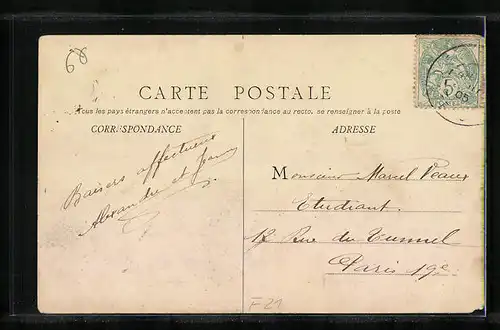 68
CARTE POSTALE
Tous les pays étrangers n'acceptent pas la correspondance au recto. se renseigner à la poste
CORRESPONDANCE
ADRESSE
Baisers affectueux
Alexandre et
Monsieur Marcel Veaux
Etudiant.
12 Rue du Tunnel
Paris 19e
F21